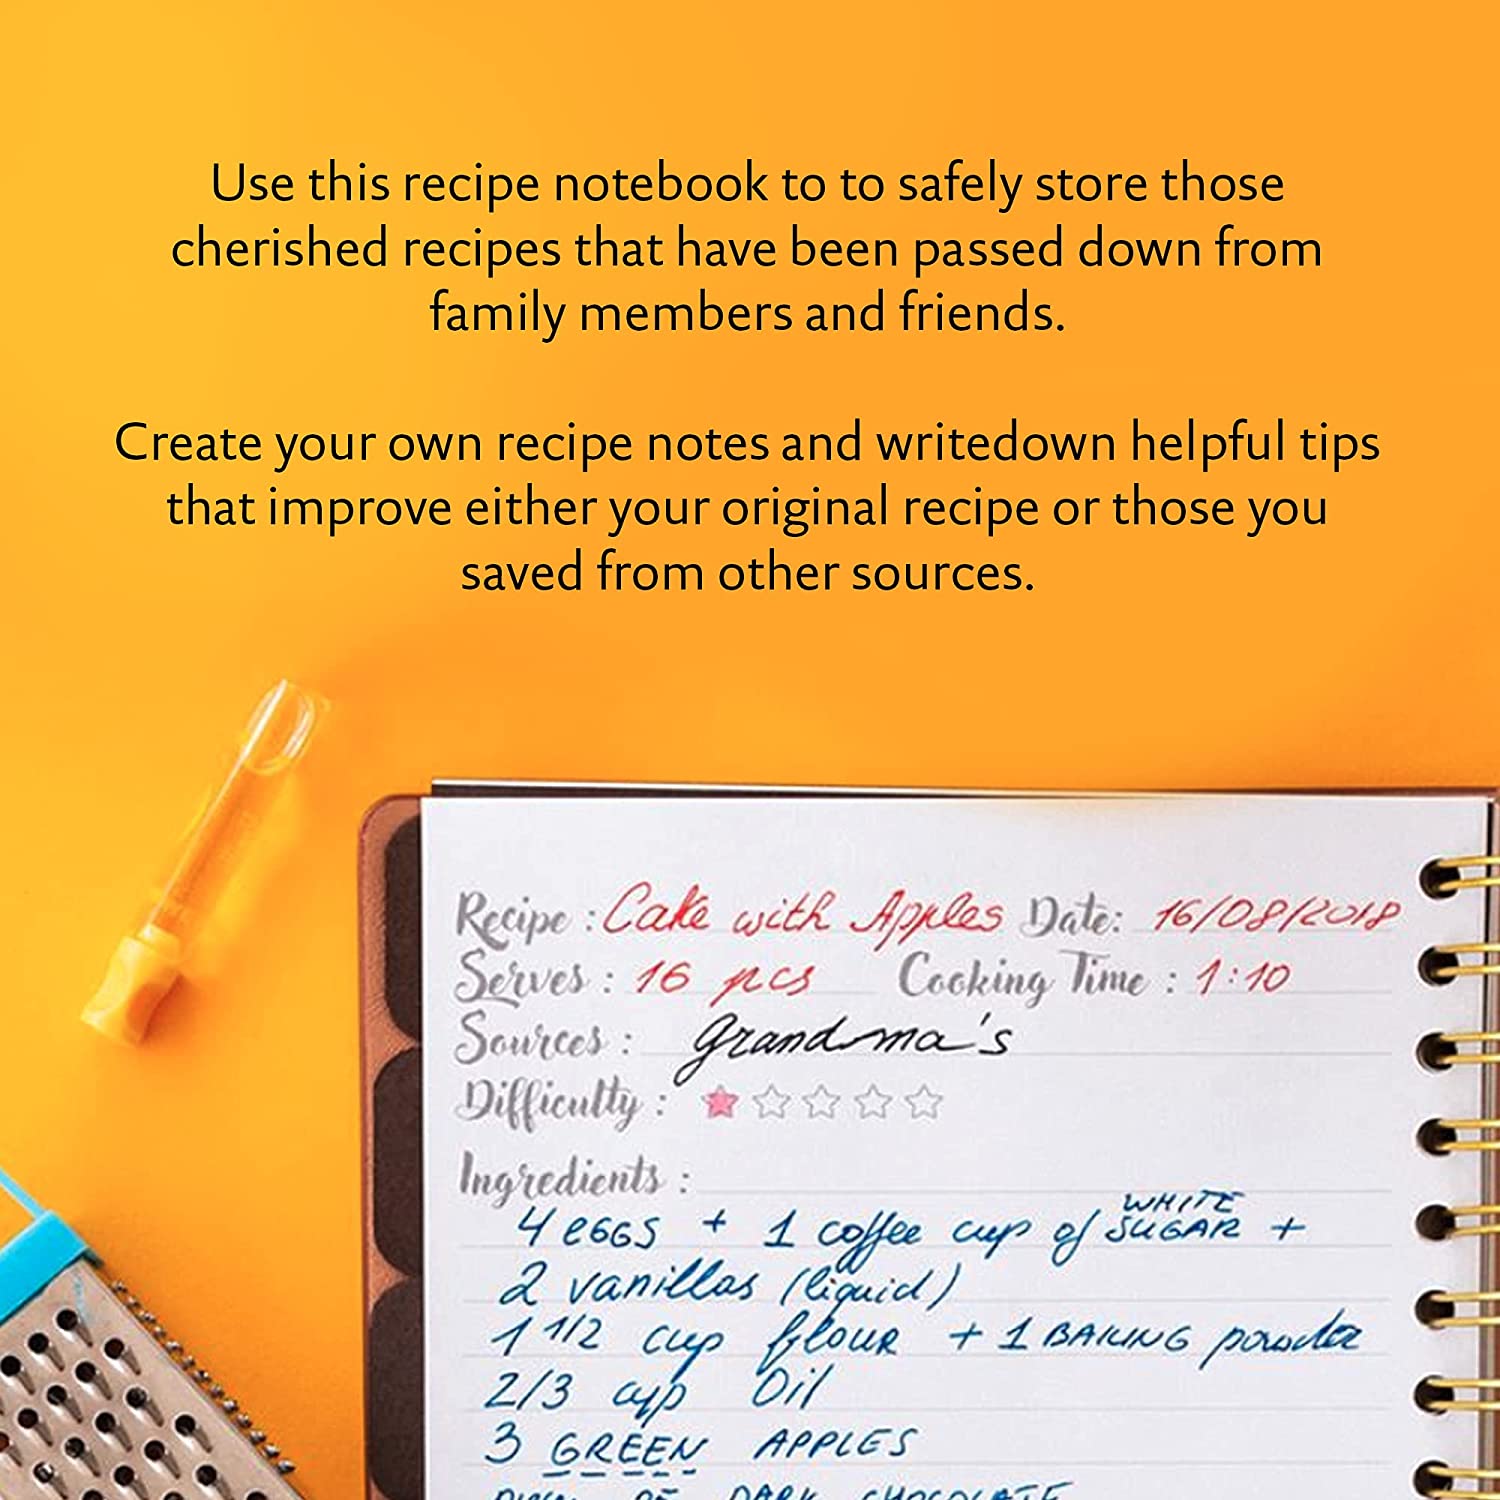 Use this recipe notebook to to safely store those
cherished recipes that have been passed down from
family members and friends.
Create your own recipe notes and writedown helpful tips
that improve either your original recipe or those you
saved from other sources.
Recipe : Cake with Apples Date: 16/08/2018
Serves : 16 pcs Cooking Time : 1:10
Sources : Grandma's
Difficulty :
Ingredients :
WHITE
4 eGGS + 1 coffee cup of SUGAR +
2 vanillas (liquid)
1 1/2 cup flOUR + 1 BAKING powder
2/3 cup Oil
3 GREEN APPLES
DARK CHOCOLATE